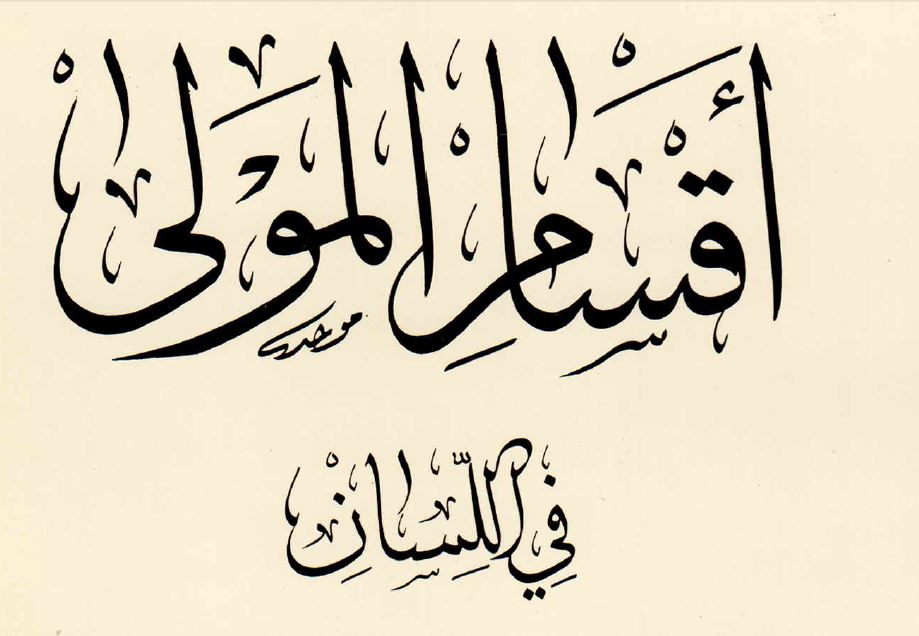 أَقْسَامُ الْمَوْلَى
موحد
فِي اللِّسَانِ